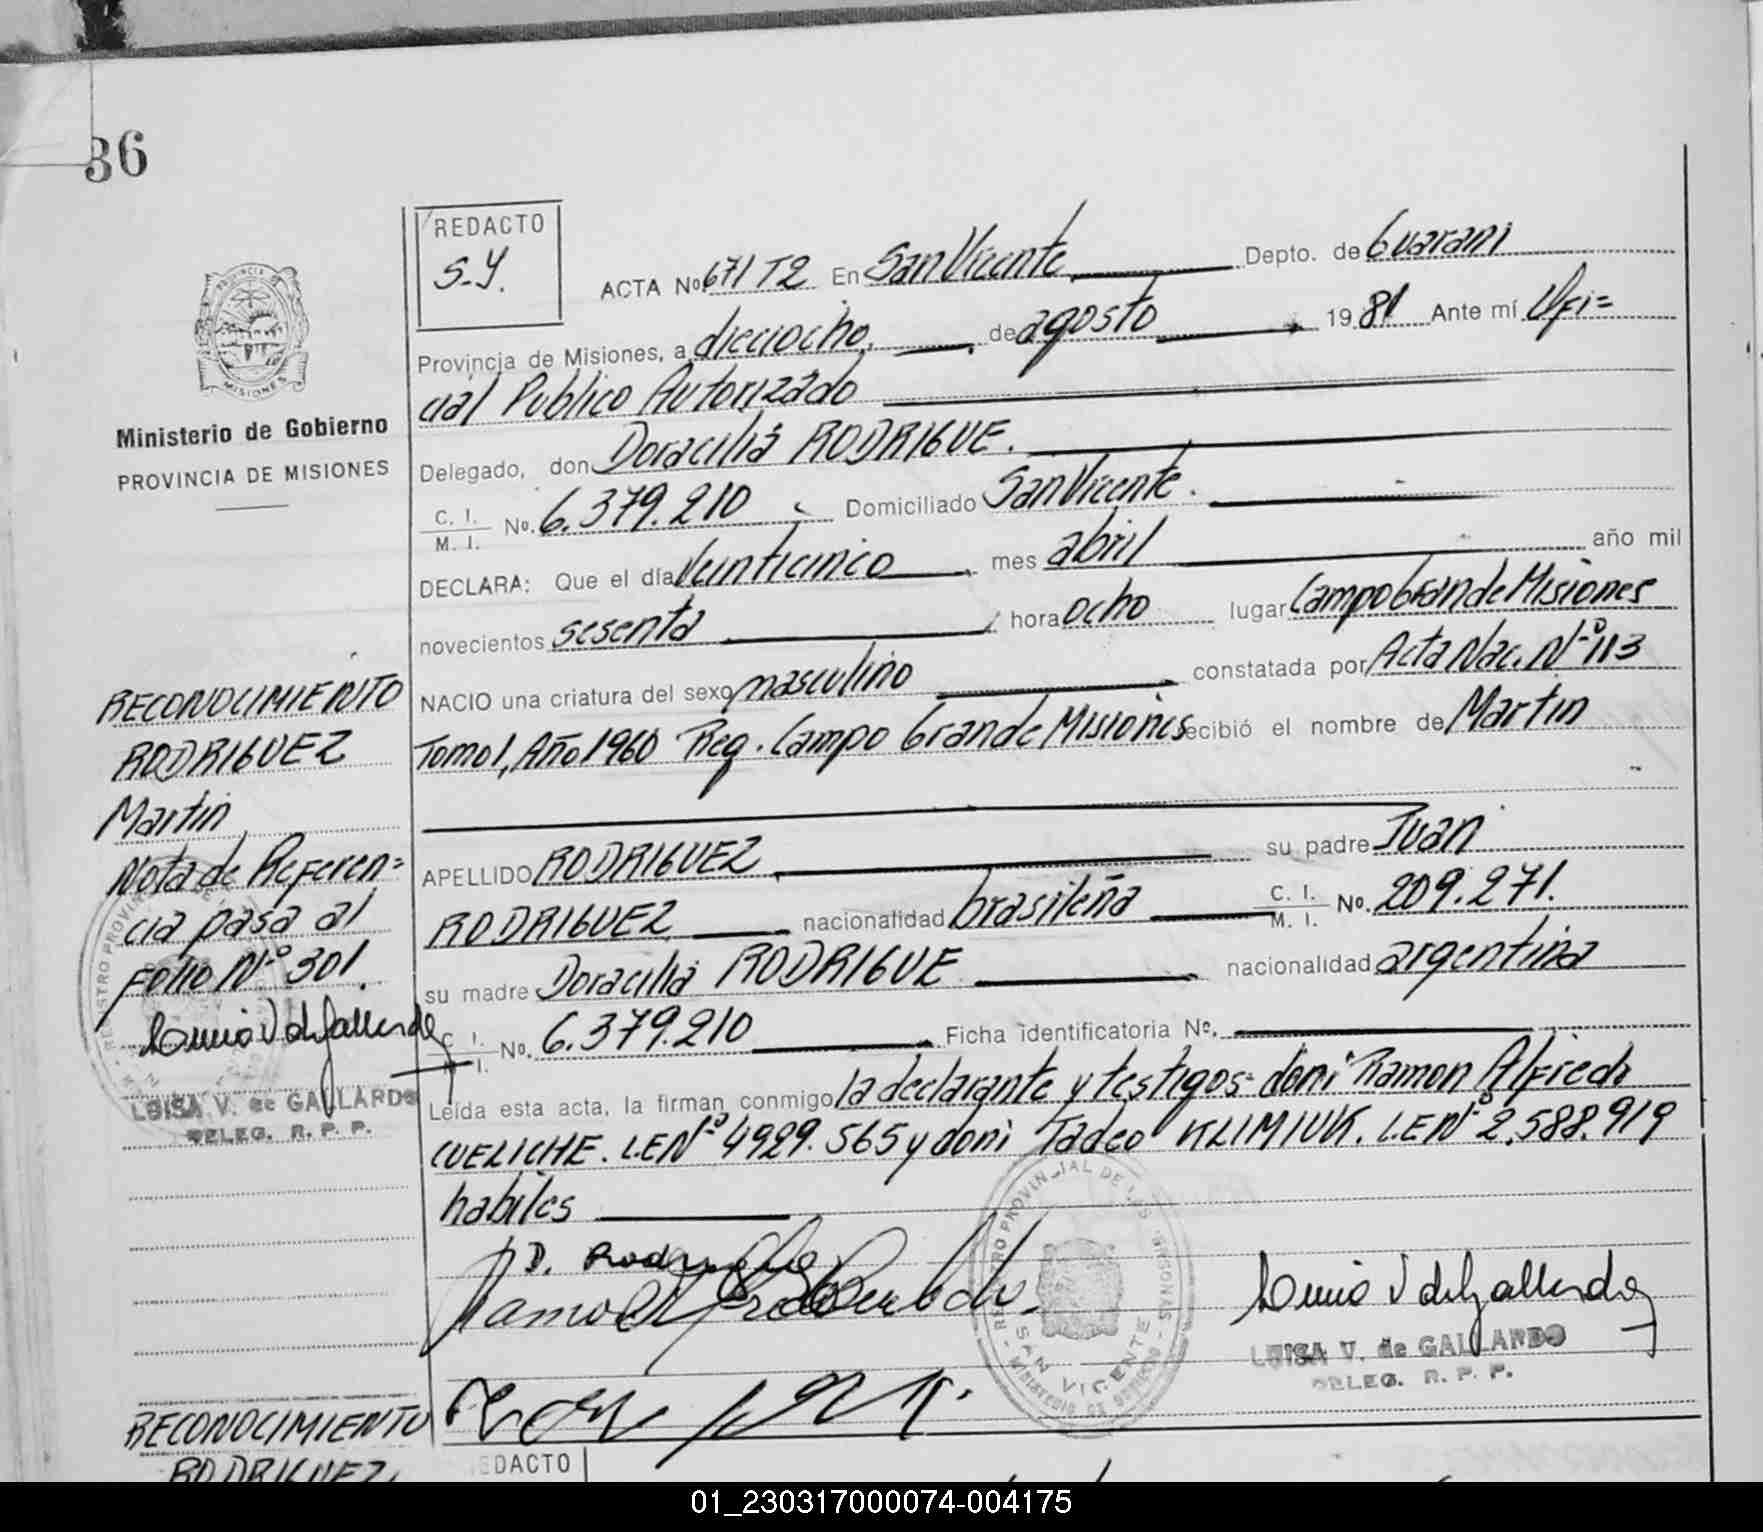 36
REDACTO
S.Y.
ACTA No. 671 T2 En San Vicente Depto. de Guarani
Provincia de Misiones, a dieciocho, de agosto 1981 Ante mí Ofi=
cial Publico Autorizado
Delegado, don Doracilia RODRIGUE.
C. I.
M. I. No. 6.379.210 Domiciliado San Vicente.
DECLARA: Que el día Veinticinco mes abril año mil
novecientos sesenta hora ocho lugar Campo Grande Misiones
NACIO una criatura del sexo masculino constatada por Acta Nac. Nº 113
Tomo 1, Año 1960 Reg. Campo Grande Misiones recibió el nombre de Martin
APELLIDO RODRIGUEZ su padre Juan
RODRIGUEZ nacionalidad brasileña C. I.
M. I. No. 209.271.
su madre Doracilia RODRIGUE nacionalidad argentina
C. I.
M. I. No. 6.379.210 Ficha identificatoria No.
Leída esta acta, la firman conmigo la declarante y testigos: don: Ramon Alfredo
CUELICHE. L.E Nº 4929.565 y don: Tadeo KLIMIUK. L.E Nº 2.588.919
habiles
D. Rodrigue
REGISTRO PROVINCIAL DE LAS PERSONAS
SAN VICENTE
LUISA V. de GALLARDO
DELEG. R. P. P.
PROVINCIA DE
MISIONES
Ministerio de Gobierno
PROVINCIA DE MISIONES
RECONOCIMIENTO
RODRIGUEZ
Martin
Nota de Referen=
cia pasa al
Folio Nº 301.
LUISA V. de GALLARDO
DELEG. R. P. P.
RECONOCIMIENTO
RODRIGUEZ,
REDACTO
01_230317000074-004175